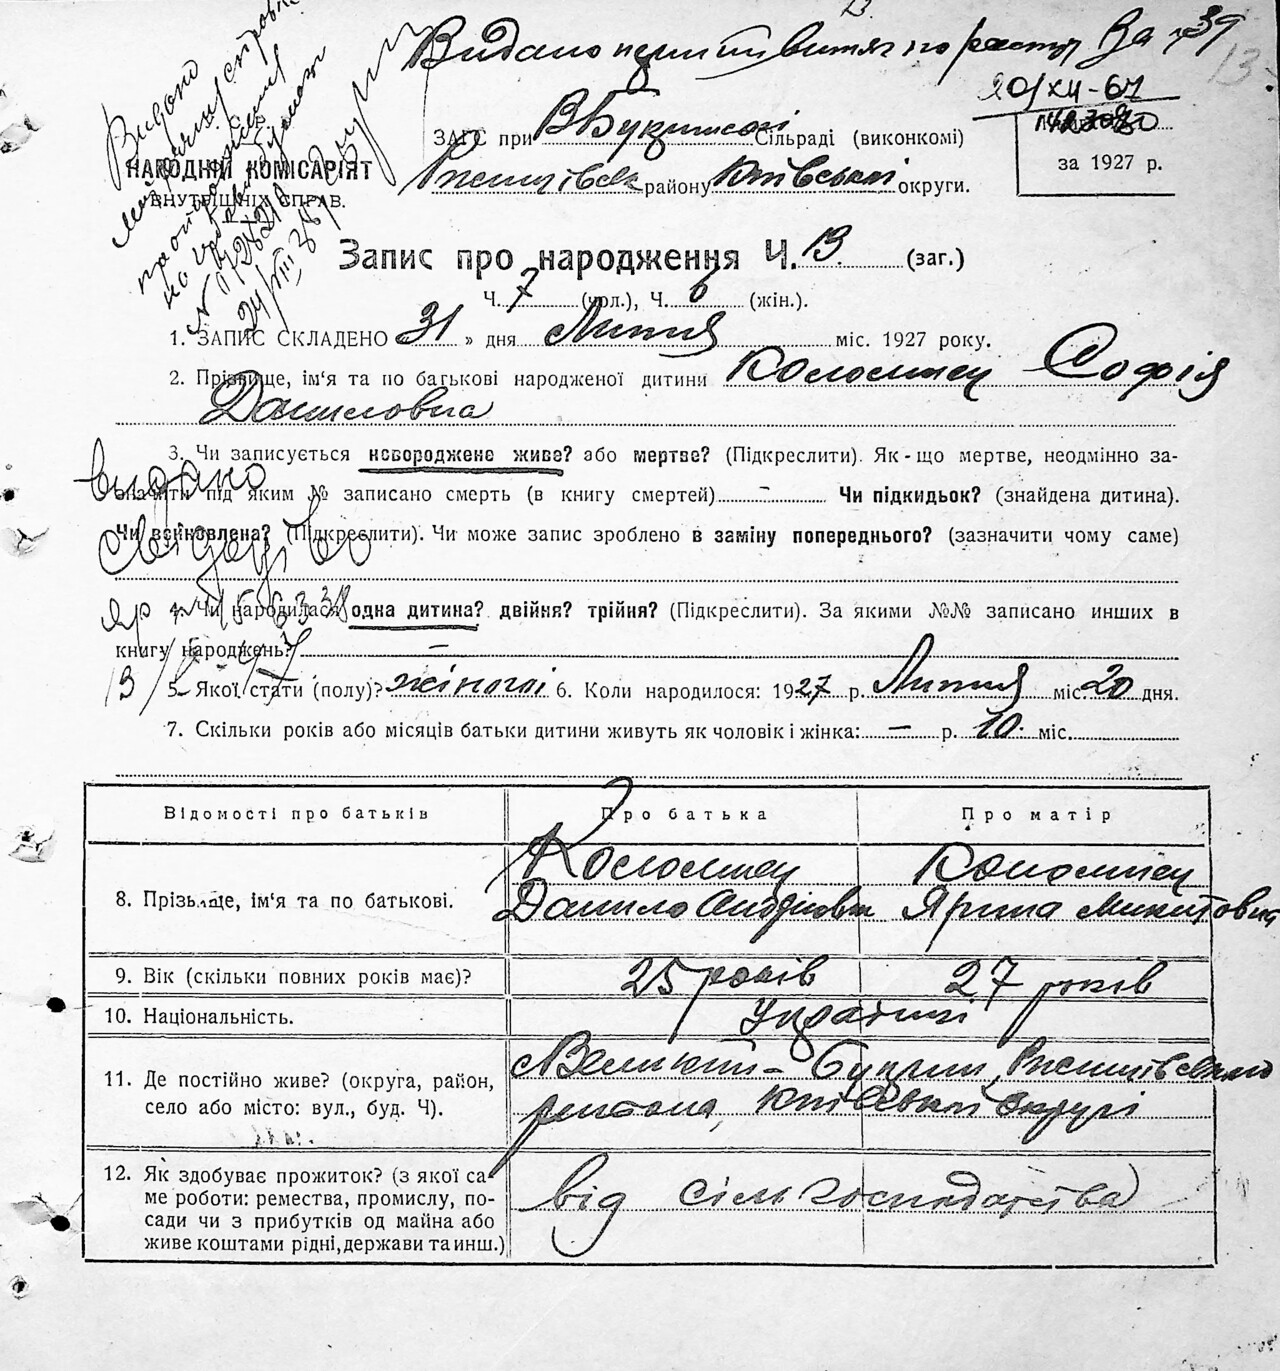 13
Видано
Видано за 39
20/XII-67
НАРОДНІЙ КОМІСАРІЯТ
ВНУТРІШНІХ СПРАВ.
ЗАГС при В Букринській Сільраді (виконкомі)
Ржищівськ району Київської округи.
за 1927 р.
Запис про народження Ч. 13. (заг.)
Ч. 7 (чол.), Ч. 6 (жін.).
1. ЗАПИС СКЛАДЕНО 31 » дня Липня міс. 1927 року.
2. Прізвище, ім'я та по батькові народженої дитини Коломиец Софія
Даниловна
3. Чи записується новороджене живе? або мертве? (Підкреслити). Як-що мертве, неодмінно за-
значити під яким № записано смерть (в книгу смертей) - Чи підкидьок? (знайдена дитина).
Чи всиновлена? (Підкреслити). Чи може запис зроблено в заміну попереднього? (зазначити чому саме)
видано
свидоцтво
4. Чи народилася одна дитина? двійня? трійня? (Підкреслити). За якими №№ записано инших в
книгу народжень? —
5. Якої стати (полу)? жіночої 6. Коли народилося: 1927 р. Липня міс. 20 дня.
7. Скільки років або місяців батьки дитини живуть як чоловік і жінка: — р. 10. міс.
Відомості про батьків Про батька Про матір
8. Прізьвще, ім'я та по батькові. Коломиец Данило Андріович Коломиец Ярина Микитовна
9. Вік (скільки повних років має)? 25 років 27 років
10. Національність. Українці
11. Де постійно живе? (округа, район,
село або місто: вул., буд. Ч). Великий-Букрин, Ржищівського
района, Київської округі
12. Як здобуває прожиток? (з якої са-
ме роботи: ремества, промислу, по-
сади чи з прибутків од майна або
живе коштами рідні, держави та инш.) від сільгосподарства